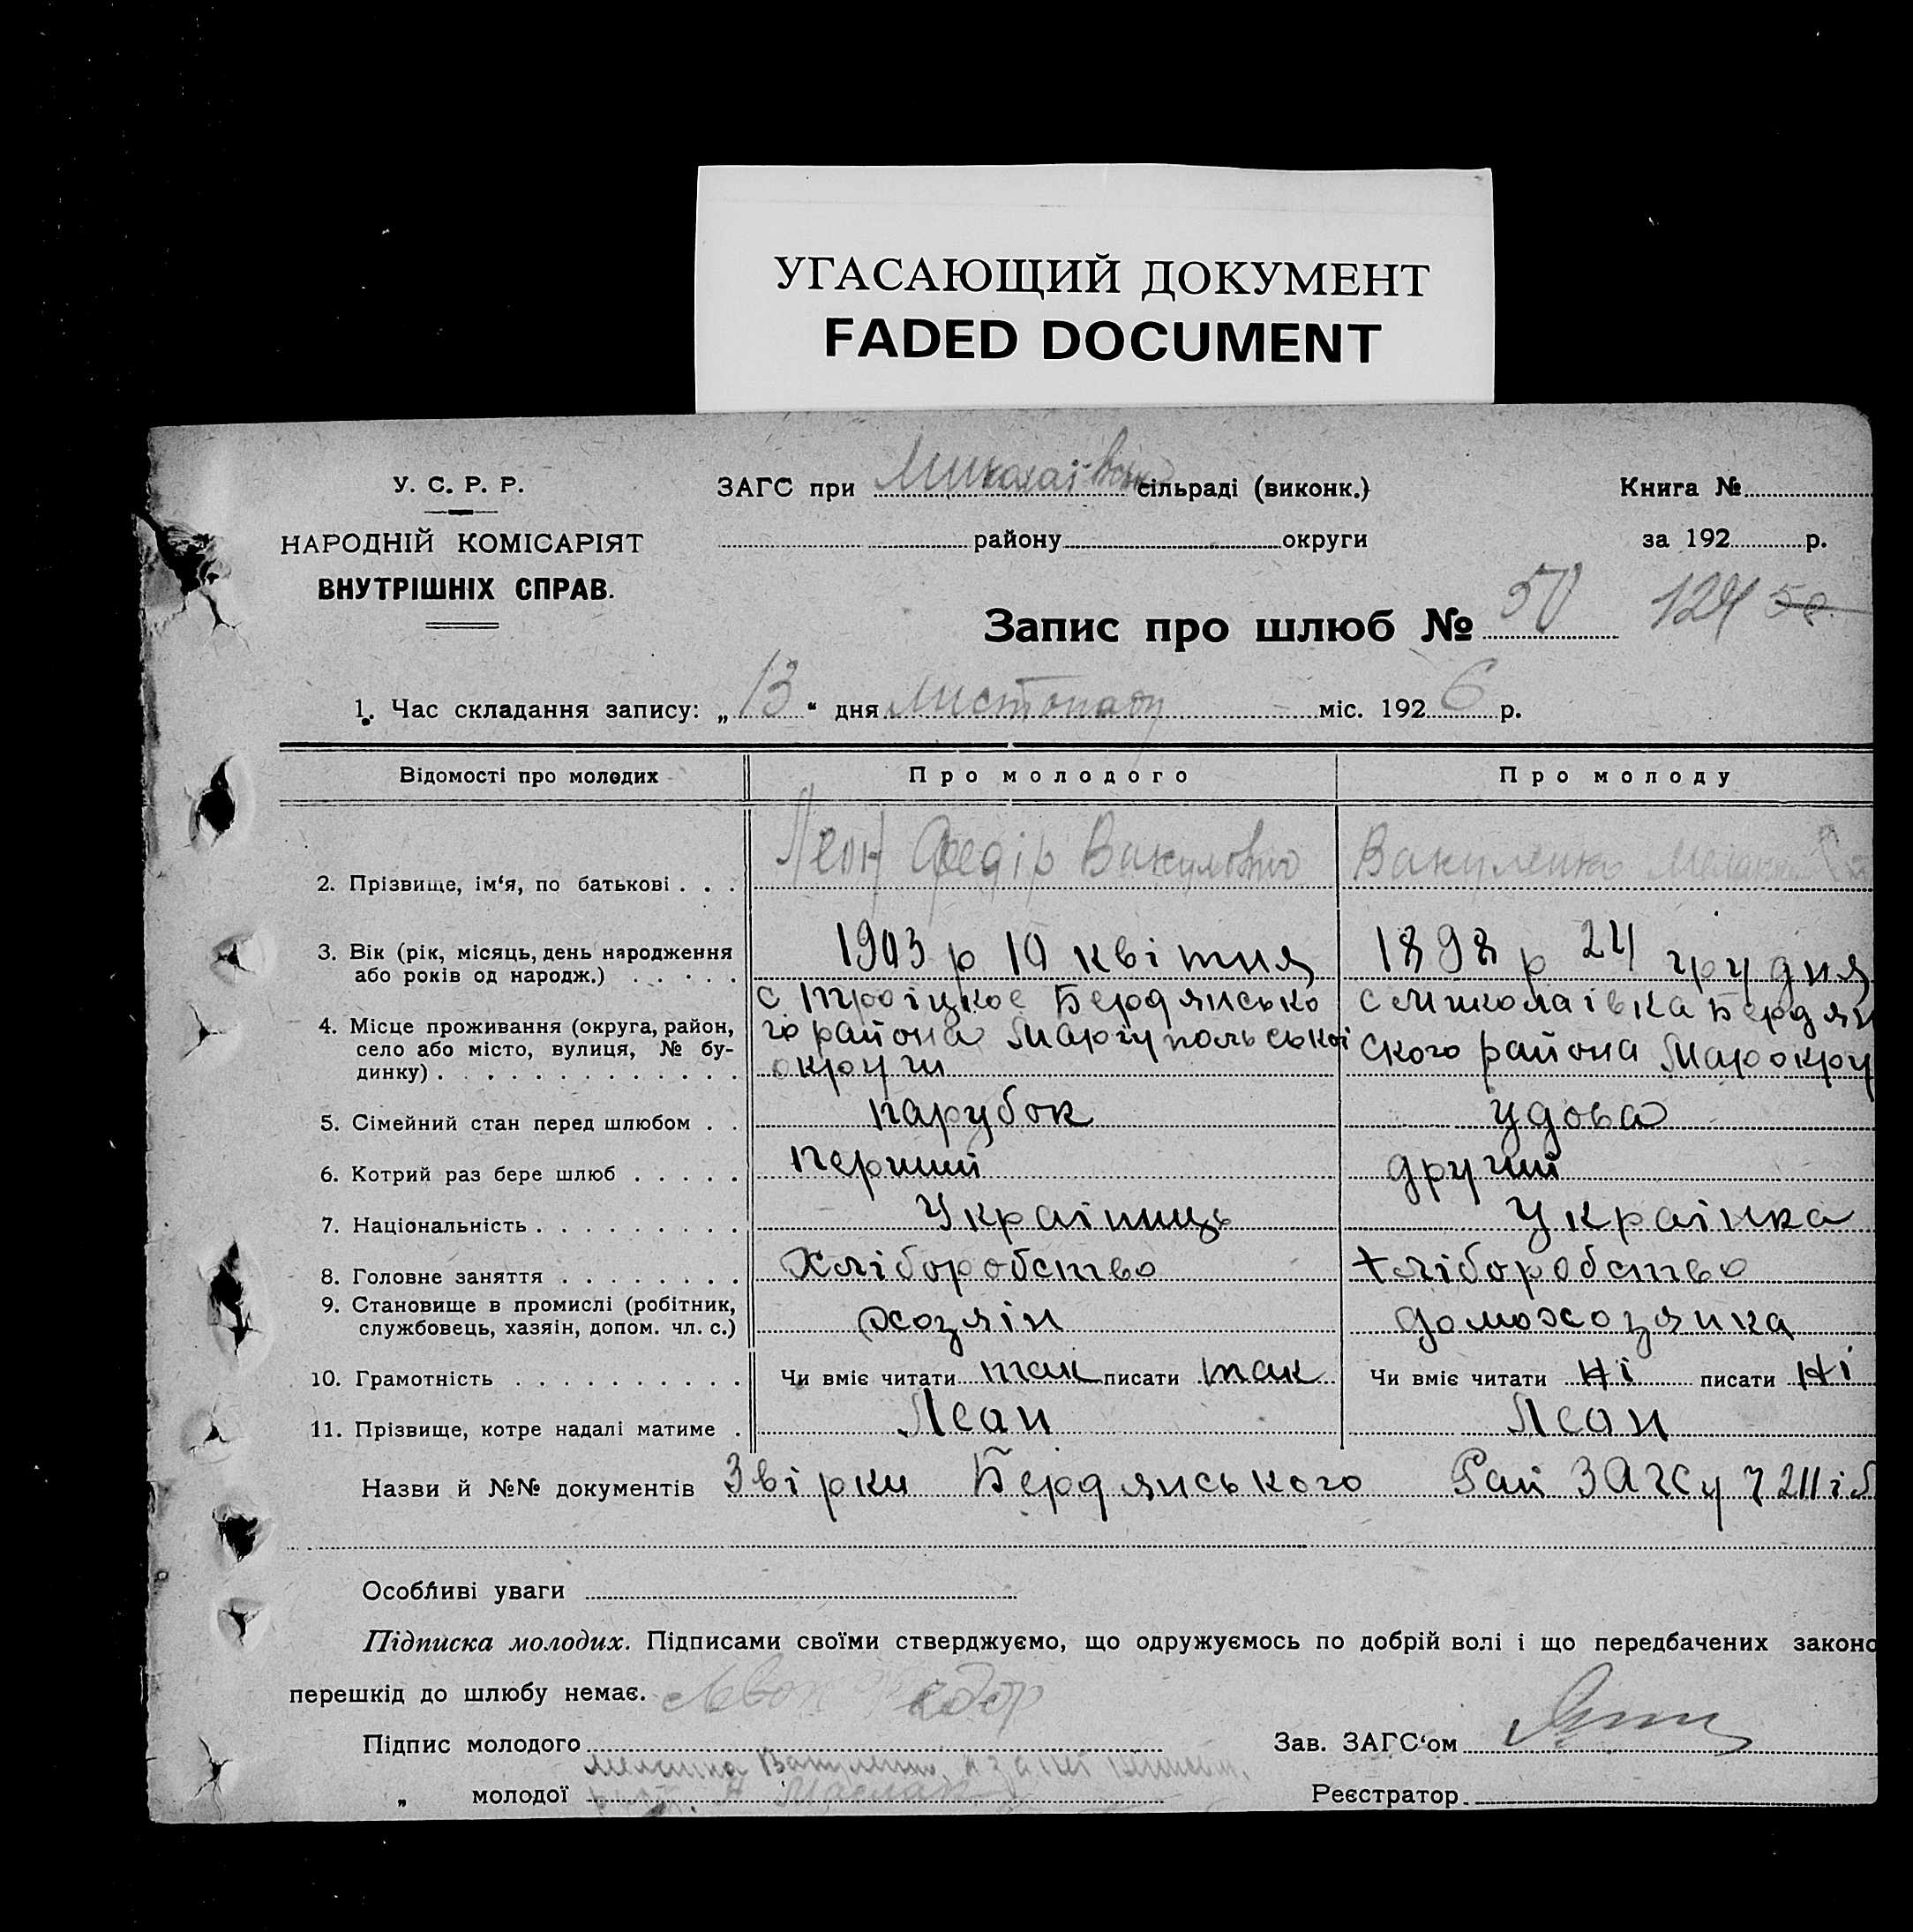 УГАСАЮЩИЙ ДОКУМЕНТ
FADED DOCUMENT
У. С. Р. Р.
НАРОДНІЙ КОМІСАРІЯТ
ВНУТРІШНІХ СПРАВ.
ЗАГС при Миколаівській сільраді (виконк.)
району округи
Книга №
за 192 р.
Запис про шлюб № 50 124 50
1. Час складання запису: „13“ дня листопаду міс. 1926 р.
Відомості про молодих Про молодого Про молоду
2. Прізвище, ім‘я, по батькові . . . Леон Федір Вакулович Вакуленко Мелания
3. Вік (рік, місяць, день народження
або років од народж.) . . . . . 1903 р 10 квітня 1898 р 24 грудня
4. Місце проживання (округа, район,
село або місто, вулиця, № бу-
динку) . . . . . . . . . . . . .
с Троіцкое Бердянсько
го района Маріупольської
округи
с Миколаівка Бердян
ского района Марокру
5. Сімейний стан перед шлюбом . . парубок удова
6. Котрий раз бере шлюб . . . . . перший другий
7. Національність . . . . . . . . . Украінець Украінка
8. Головне заняття . . . . . . . . Хліборобство Хліборобство
9. Становище в промислі (робітник,
службовець, хазяін, допом. чл. с.) хозяін домохозяйка
10. Грамотність . . . . . . . . . . Чи вміє читати так писати так Чи вміє читати Ні писати Ні
11. Прізвище, котре надалі матиме . Леон Леон
Назви й №№ документів Звірки Бердянського Рай ЗАГСу
Особливі уваги
Підписка молодих. Підписами своїми стверджуємо, що одружуємось по добрій волі і що передбачених законо
перешкід до шлюбу немає.
Підпис молодого Левон Федор
Зав. ЗАГС‘ом
„ молодої Мелания Вакуленко, а за неі
Реєстратор